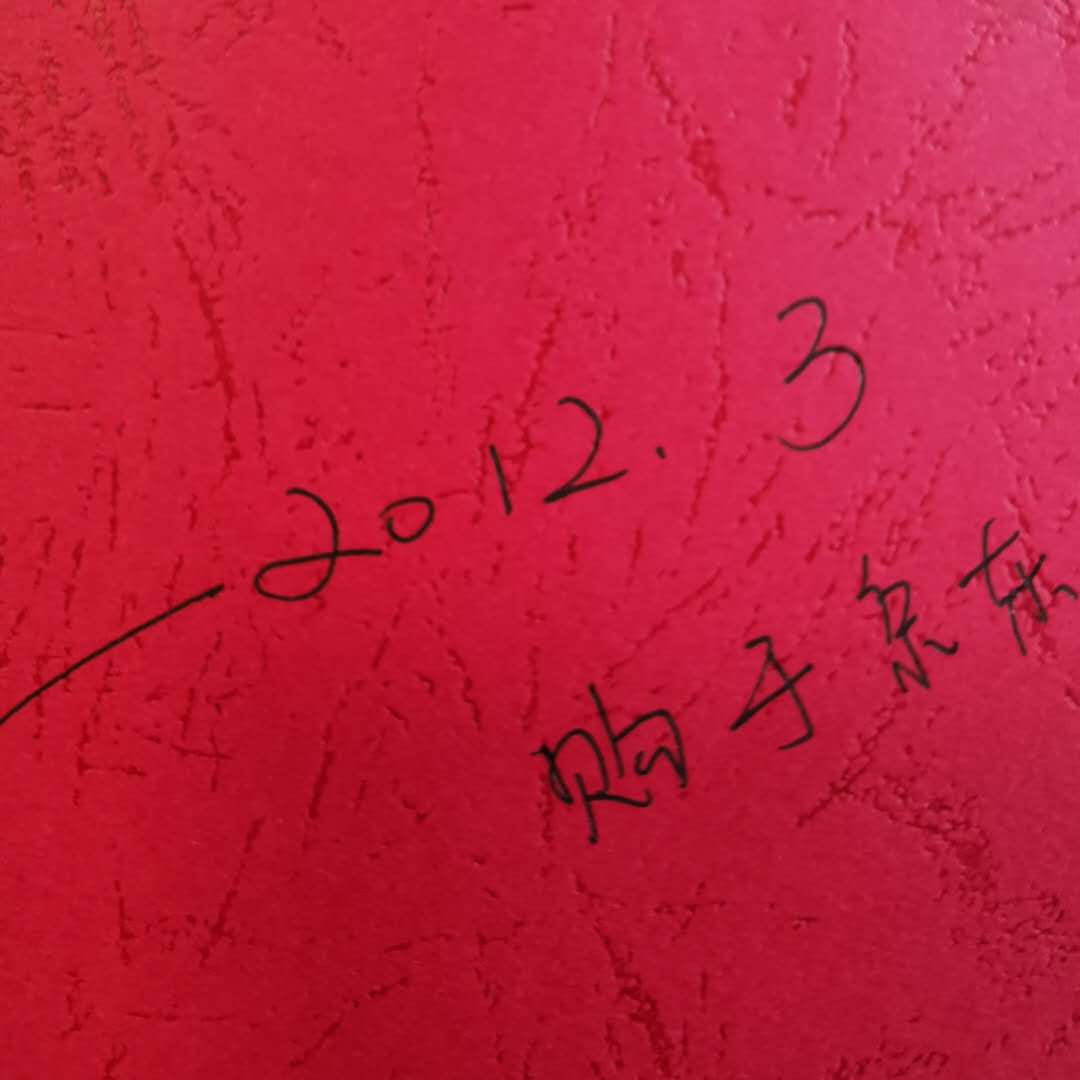 2012.3
购于京东